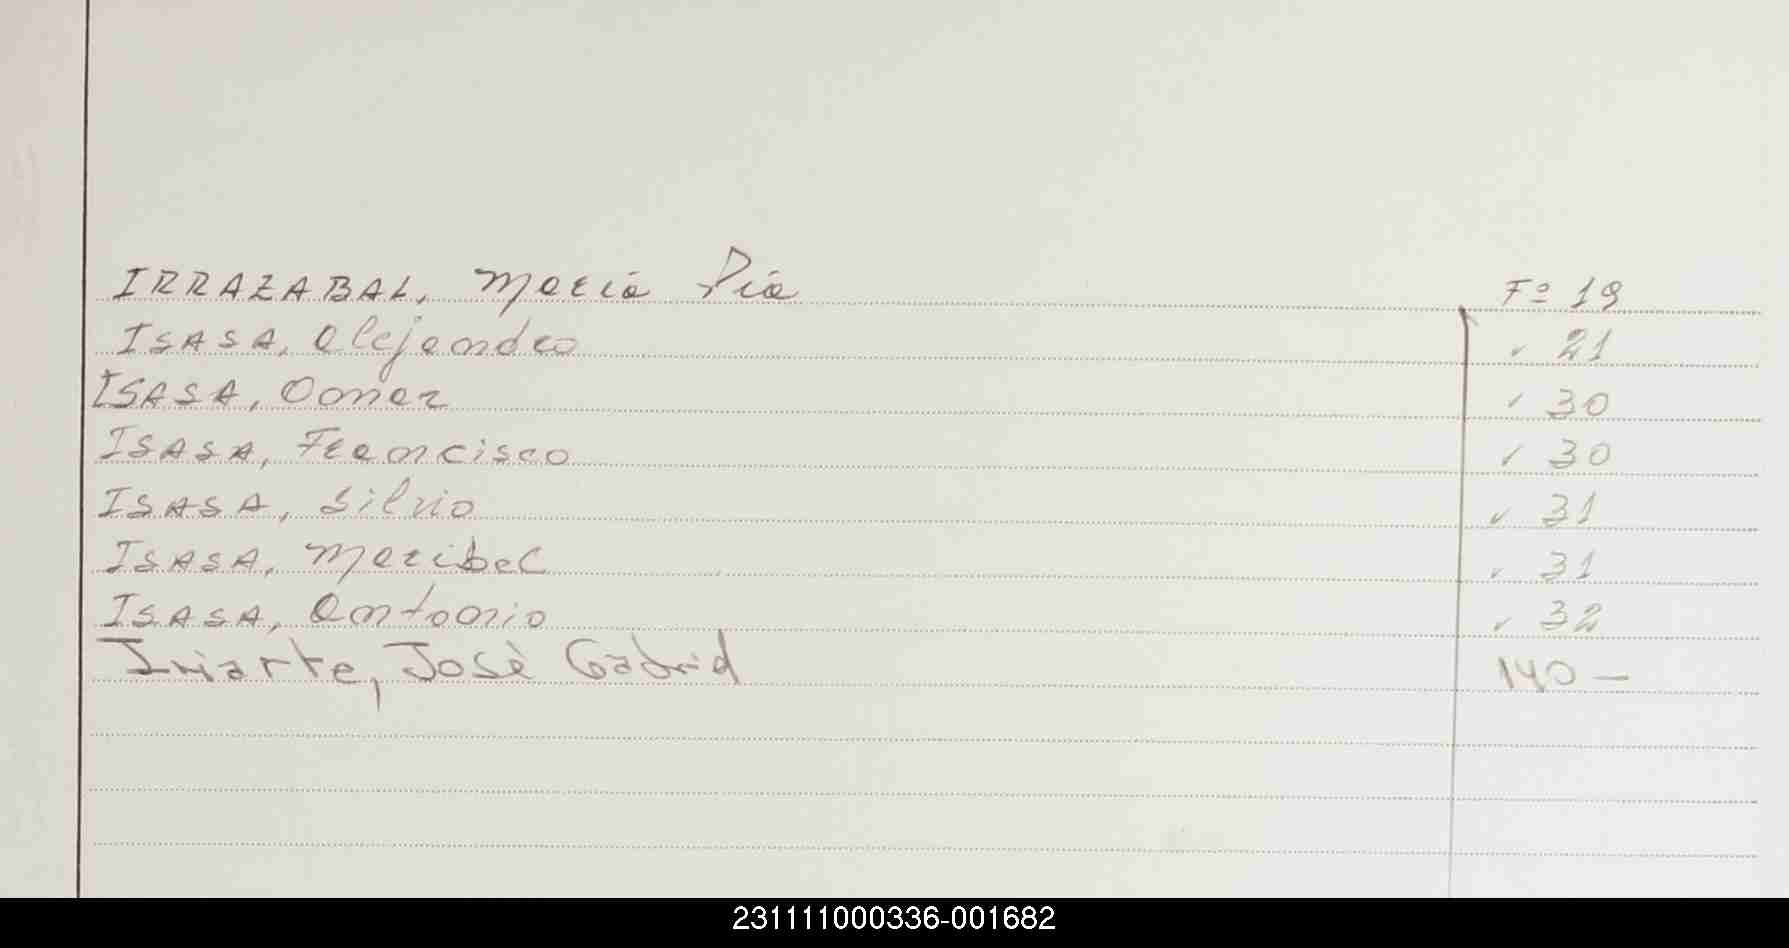 IRRAZABAL, María Pía Fº 19
ISASA, Alejandro ✓ 21
ISASA, Oomar ✓ 30
ISASA, Francisco ✓ 30
ISASA, Silvio ✓ 31
ISASA, Maribel ✓ 31
ISASA, Antonio ✓ 32
Iriarte, Josè Gabriel 140 —
231111000336-001682